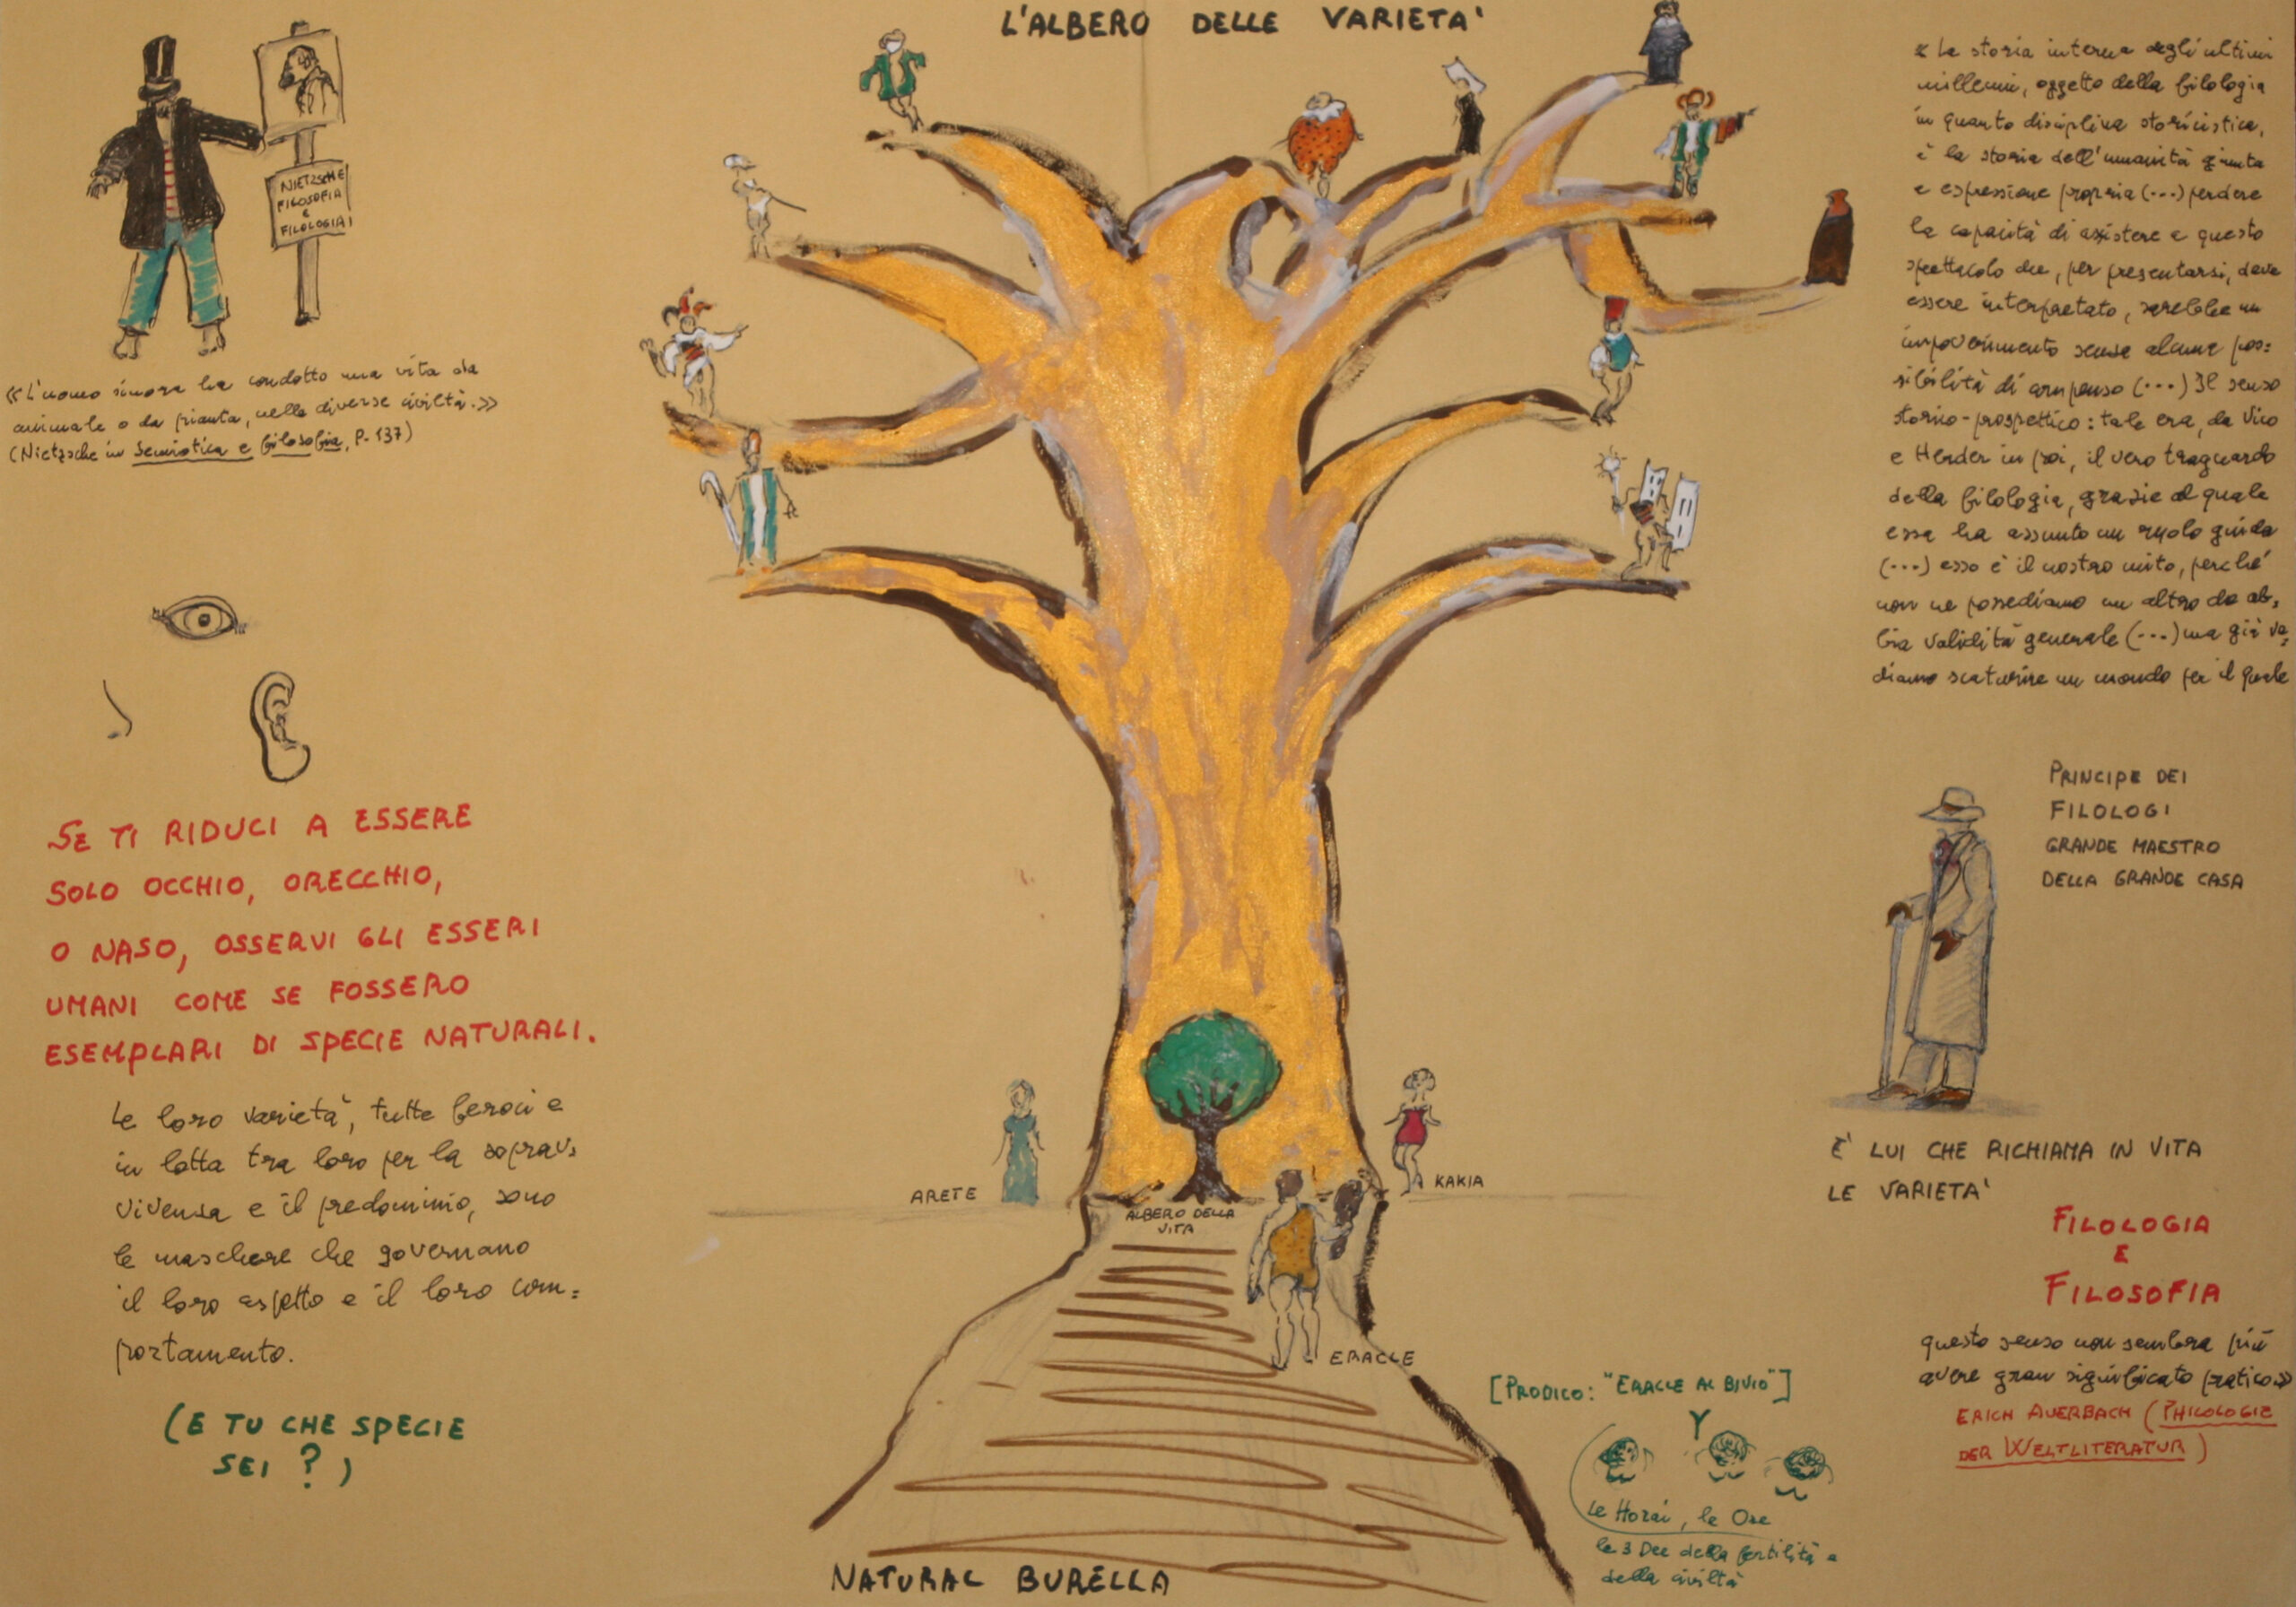 L'ALBERO DELLE VARIETA'
NIETZSCHE
FILOSOFIA
E
FILOLOGIA
«L'uomo sinora ha condotto una vita da
animale o da pianta, nelle diverse civiltà.»
(Nietzsche in Semiotica e filosofia, P. 137)
SE TI RIDUCI A ESSERE
SOLO OCCHIO, ORECCHIO,
O NASO, OSSERVI GLI ESSERI
UMANI COME SE FOSSERO
ESEMPLARI DI SPECIE NATURALI.
Le loro varietà, tutte feroci e
in lotta tra loro per la soprav=
vivenza e il predominio, sono
le maschere che governano
il loro aspetto e il loro com=
portamento.
(E TU CHE SPECIE
SEI ?)
ARETE
ALBERO DELLA
VITA
KAKIA
ERACLE
NATURAL BURELLA
[PRODICO: "ERACLE AL BIVIO"]
Y
Le Horai, le Ore
le 3 Dee della fertilità e
della civiltà
« La storia interna degli ultimi
millenni, oggetto della filologia
in quanto disciplina storicistica,
è la storia dell'umanità giunta
e espressione propria (...) perdere
la capacità di assistere a questo
spettacolo che, per presentarsi, deve
essere interpretato, sarebbe un
impoverimento senza alcuna pos=
sibilità di compenso (...) Il senso
storico-prospettico: tale era, da Vico
e Herder in poi, il vero traguardo
della filologia, grazie al quale
essa ha assunto un ruolo guida
(...) esso è il nostro mito, perché
non ne possediamo un altro che ab=
bia validità generale (...) ma già ve=
diamo scaturire un mondo per il quale
PRINCIPE DEI
FILOLOGI
GRANDE MAESTRO
DELLA GRANDE CASA
E' LUI CHE RICHIAMA IN VITA
LE VARIETA'
FILOLOGIA
E
FILOSOFIA
questo senso non sembra più
avere gran significato pratico.»
ERICH AUERBACH (PHILOLOGIE
DER WELTLITERATUR)